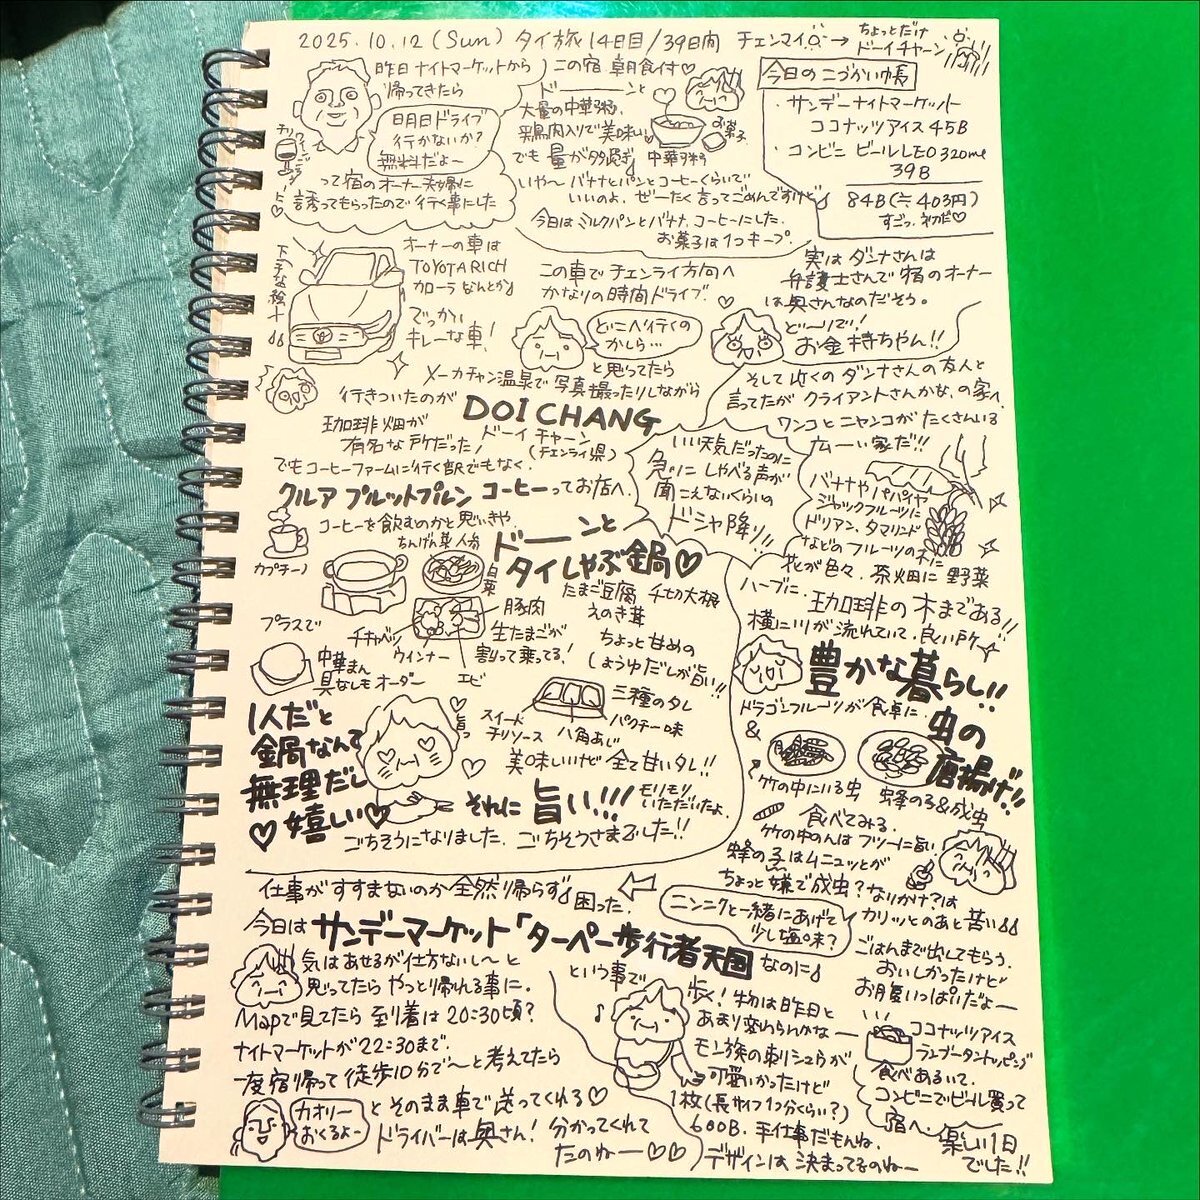 2025.10.12(Sun) タイ旅14日目/39日間 チェンマイ→ちょっとだけ
ドーイチャーン
昨日ナイトマーケットから
帰ってきたら
明日ドライブ
行かないか?
無料だよ〜
って宿のオーナー夫婦に
誘ってもらったので行く事にした
この宿 朝食付♡
ドーーーンと
大量の中華粥
鶏肉入りで美味しい
でも量が多過ぎ
中華粥
お菓子
いや〜バナナとパンとコーヒーくらいで
いいのよ、ぜーたく言ってごめんですけど
今日はミルクパンとバナナ、コーヒーにした。
お菓子は1つキープ。
今日のこづかい帳
・サンデーナイトマーケット
ココナッツアイス45B
・コンビニ ビールLEO320ml
39B
84B(≒403円)
すごっ、初だ♡
下手な絵
オーナーの車は
TOYOTA RICH
カローラなんとか
でっかい
キレーな車!
この車でチェンライ方向へ
かなりの時間ドライブ♡
どこへ行くの
かしら…
と思ってたら
メーカチャン温泉で写真撮ったりしながら
実はダンナさんは
弁護士さんで宿のオーナー
は奥さんなのだそう。
どーりで!
お金持ちゃん!!
行きついたのが
DOI CHANG
珈琲畑が
有名な所だった!
ドーイチャーン
(チェンライ県)
でもコーヒーファームに行く訳でもなく。
クルア プルットプルン コーヒーってお店へ。
コーヒーを飲むのかと思いきや、
カプチーノ
ドーーンと
タイしゃぶ鍋♡
白菜
豚肉
チキャベツ
ウインナー
エビ
生たまごが
割って乗ってる!
たまご豆腐 千切大根
えのき茸
ちょっと甘めの
しょうゆだしが旨い!!
プラスで
中華まん
具なしもオーダー
三種のタレ
スイート
チリソース
八角あじ
パクチー味
美味しいけど全て甘いタレ!!
1人だと
鍋なんて
無理だし
♡嬉しい♡
旨っ
それに旨い!!!
モリモリ
いただいたよ。
ごちそうになりました。ごちそうさまでした!!
いい天気だったのに
急にしゃべる声が
聞こえないくらいの
ドシャ降り!!
そして近くのダンナさんの友人と
言ってたがクライアントさんかな、の家へ
ワンコとニャンコがたくさんいる
広ーい家だ!!
バナナやパパイヤ
ジャックフルーツに
ドリアン、タマリンド
などのフルーツの木に
花が色々、茶畑に野菜
ハーブに、珈琲の木まである!!
横に川が流れていて、良い所〜
豊かな暮らし!!
ドラゴンフルーツが食卓に
&
虫の
唐揚げ!!
竹の中にいる虫
蜂の子&成虫
食べてみる。
竹の中のんはフツーに旨い
蜂の子はムニュッとが
ちょっと嫌で成虫?なりかけ?は
カリッとのあと苦い
ニンニクと一緒にあげて
少し塩味?
ごはんまで出してもらう。
おいしかったけど
お腹いっぱいだよー
仕事がすすまないのか全然帰らず
困った。
今日はサンデーマーケット「ターペー歩行者天国」なのに
気はあせるが仕方ないし〜と
思ってたらやっとり帰れる事に。
Mapで見てたら到着は20:30頃?
ナイトマーケットが22:30まで。
一度宿帰って徒歩10分で〜と考えてたら
カオリー
おくるよー
とそのまま車で送ってくれる♡
ドライバーは奥さん!分かってくれて
たのねー♡♡
という事で
歩く!物は昨日と
あまり変わらんかなー
モン族の刺シュウが
可愛いかったけど
1枚(長サイフ1つ分くらい?)
600B。手仕事だもんね、
デザインは決まってるのねー
ココナッツアイス
ランブータントッピング
食べあるいて、
コンビニでビール買って
宿へ。
楽しい1日
でした!!